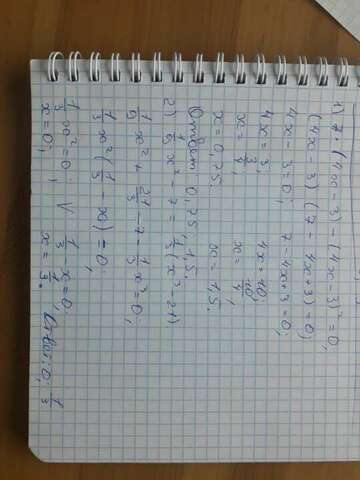 1) 7·(4x-3)-(4x-3)²=0;
(4x-3)(7-4x+3)=0;
4x-3=0; 7-4x+3=0;
4x=3; 4x=10;
x=3/4; x=10/4;
x=0,75 x=1,5.
Ответ: 0,75; 1,5.
2) 1/9x²-7=1/3(x³-21)
1/9x²+21/3-7-1/3x³=0;
1/3x²(1/3-x)=0;
1/3x²=0; V 1/3-x=0;
x=0; x=1/3. Ответ: 0; 1/3